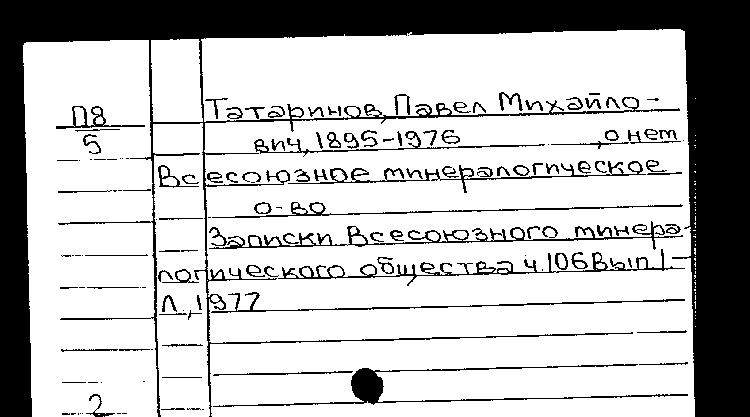 П8 Татаринов, Павел Михайло-
5 вич, 1895-1976 , о нем
Всесоюзное минералогическое
о-во
Записки Всесоюзного минера-
логического общества ч.106 Вып.1-
Л., 1977
2